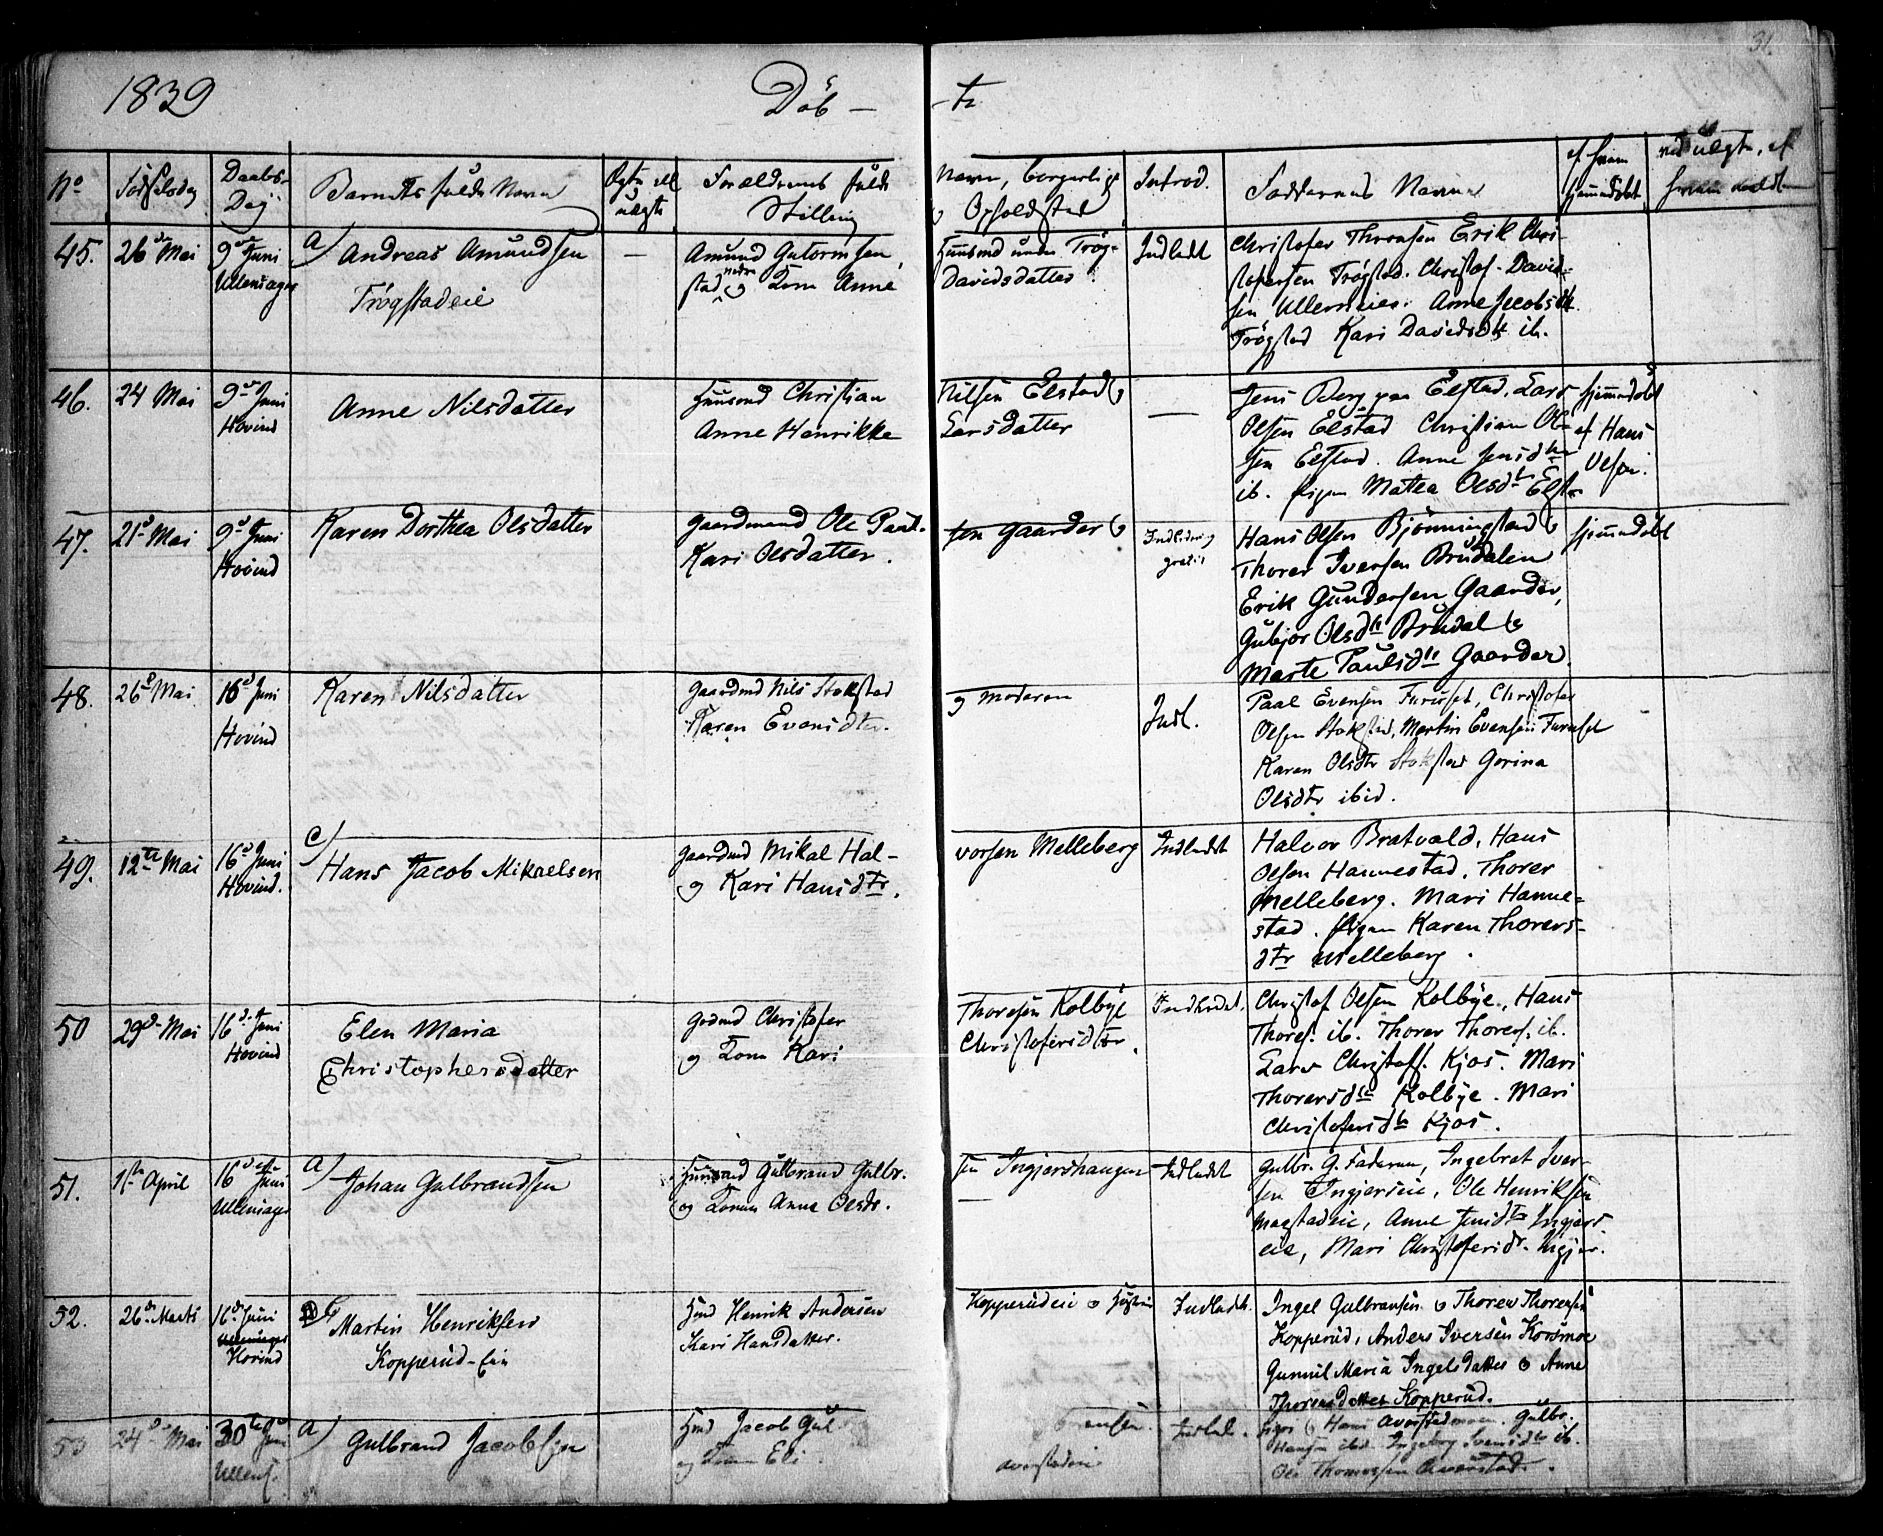 31.
1839 Döb — -te
No Födselsdag Daabs- Dag Barnets fulde Navn Ægte ell uægte Forældrenes fulde Navn, borgerlige Introd. Faddernes Navne
Stilling og Opholdsted
45. 26de Mai 9de Juni a) Andreas Amundsen — Amund Gutormsen, Huusmd under Trög- Indledt Christofer Thoresen Erik Chri-
Ullensager Trögstadeie stad nedre og Kone Anne Davidsdatter. stofersen Trögstad. Christof. David-
sen Ullerneie. Anne Jacobsdtr
Trögstad Kari Davidsdtr ib.
46. 24 Mai 9de Juni Anne Nilsdatter Huusmd Christian Nilsen Elstad & — Jens Berg paa Elstad, Lars hjemmedöbt
Hovind Anne Henrikke Larsdatter Olsen Elstad Christian Ol- af Hans
sen Elstad. Anne Jensdtr Olsen.
ib. pigen Mathea Olsdtr Elst
47. 21de Mai 9de Juni Karen Dorthea Olsdatter Gaardmand Ole Paul- sen Gaarder & Indledes gratis Hans Olsen Bjönningstad & hjemmedöbt
Hovind Kari Olsdatter. Thorer Iversen Brudalen
Erik Gundersen Gaarder,
Gubjor Olsdtr Brudal &
Marte Paulsdtr Gaarder.
48. 26de Mai 16de Juni Karen Nilsdatter Gaardmd Nils Stokstad og Moderen Indl. Paal Evensen Furuset, Christofer
Hovind Karen Evensdtr. Olsen Stokstad, Martin Evensen Furuset
Karen Olsdtr Stokstad Gorina
Olsdtr ibid.
49. 12te Mai 16de Juni c) Hans Jacob Mikaelsen Gaardmd Mikal Hal- vorsen Melleberg Indledet Halvor Bratvold, Hans
Hovind. og Kari Hansdtr. Olsen Hannestad. Thorer
Melleberg. Mari Hanne-
stad. Pigen Karen Thorers-
dtr Melleberg.
50 29de Mai 16de Juni Elen Maria Grdmd Christofer Thoresen Kolbye Indledet. Christof Olsen Kolbye, Hans
Hovind Christophersdatter og Kone Kari Christofersdtr. Thores. ib. Thorer Thores. ib.
Lars Christoff. Kjos. Mari
Thorersdtr Kolbye. Mari
Christofersdtr Kjos.
51. 1ste April 16de Juni a) Johan Gulbrandsen Huusmd Gulbrand Gulbr. sen Ingjershaugen Indledet Gulbr. G. Faderen, Ingebret Iver-
Ullensager og Konen Anne Olsdr. — sen Ingjerseie, Ole Henriksen
Magstadeie, Anne Jensdtr Ingjers
eie, Mari Christofersdr. Ingjer.
52. 26de Marts 16de Juni Martin Henriksen Hmd Henrik Andersen Kopperudeie & Hustru Indledt. Ingel Gulbransen & Thorer Thoresen
Ullensager Hovind Kopperud-Eie Kari Hansdatter. Kopperud, Anders Iversen Korsmoe
Gunnil Maria Ingelsdatter & Anne
Thoresdatter Kopperud.
53 24de Mai 30te Juni a) Gulbrand Jacobsen Hmd Jacob Gul- bransen. Indledt. Hans Averstadmoen. Gulbr.
Ullens. og Kone Eli. Averstadeie Hansen ibid. Ingeborg Svensdtr ib.
Ole Thomessen Averstad.